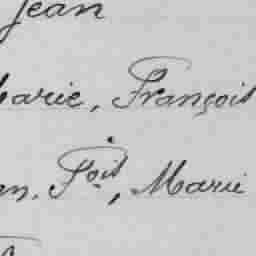 Jean
Marie, François
en, Fois, Marie